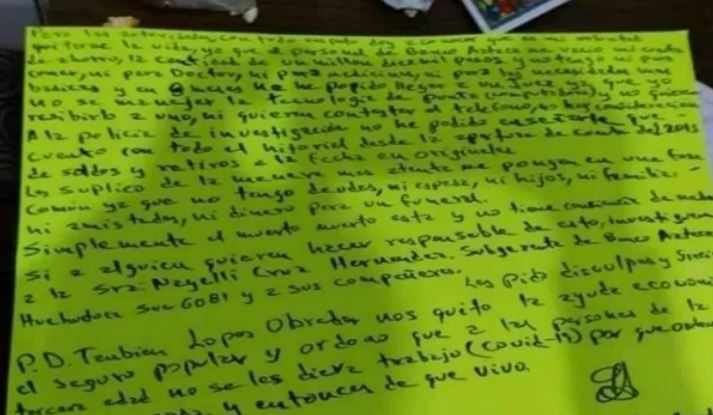 Para las autoridades, con todo respeto doy a conocer que es mi voluntad
quitarme la vida, ya que el personal de Banco Azteca me vacio mi cuenta
de ahorro, la cantidad de un millon diezmil pesos y no tengo ni para
comer, ni para Doctor, ni para medicinas, ni para las necesidades mas
basicas y en 8 meses no he podido llegar a un Juez ya que yo
no se manejar la tecnologia de punta (computadora) y no quieren
recibirlo a uno, ni quieren contestar el telefono, no hay consideracion
A la policia de investigación no he podido enseñarle que
cuento con todo el hitorial desde la apertura de cuenta del 2015
de saldos y retiros a la fecha en originales
Les suplico de la manera mas atenta me pongan en una fosa
comun ya que no tengo deudos, ni esposa, ni hijos, ni familia
ni amistades, ni dinero para un funeral.
Simplemente el muerto muerto esta y no tiene
si a alguien quieren hacer responsable de esto, investiguen
a la Sra: Nayelli Cruz Hernandez. Subgerente de Banco Azteca
Huehuetoca Suc 6081 y a sus compañeros.
Les Pido disculpas y
P.D. Tambien Lopes Obrador nos quito la ayuda economi
el seguro popular y ordono que a las personas de la
tercera edad no se les diera trabajo (covid-19) por que
y entonces de que vivo.